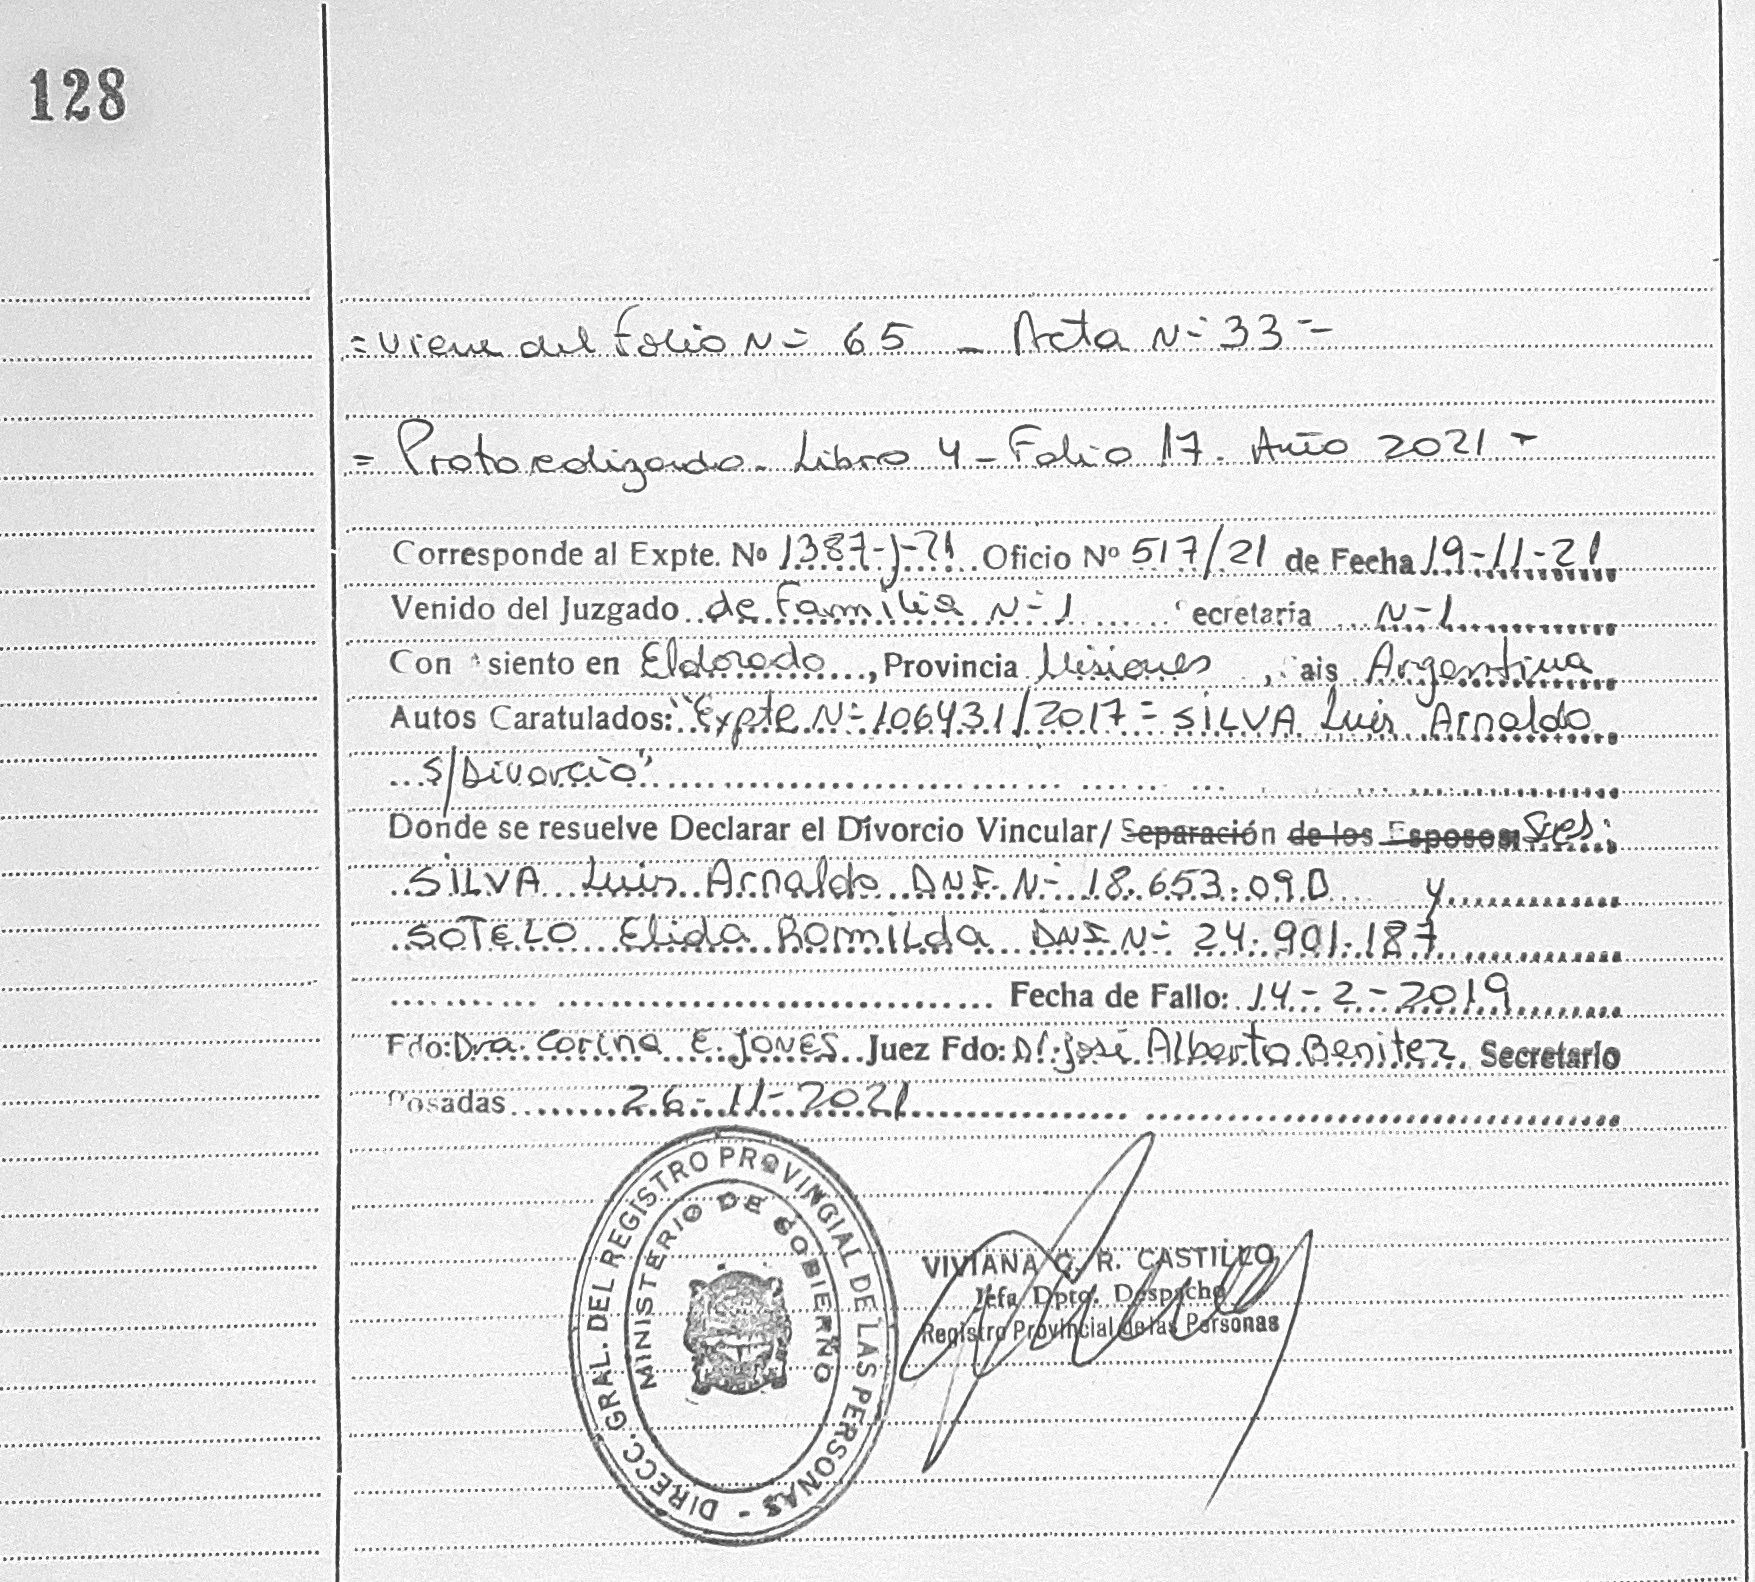 128
= Viene del Folio N= 65 - Acta N= 33 =
= Protocolizado - Libro 4 - Folio 17. Año 2021 -
Corresponde al Expte. Nº 1387-J-21 Oficio Nº 517/21 de Fecha 19-11-21
Venido del Juzgado de Familia N=1 ecretaria N-1
Con siento en Eldorado, Provincia Misiones, ais Argentina
Autos Caratulados: "Expte N= 106431/2017 = SILVA Luis Arnaldo
S/Divorcio"
Donde se resuelve Declarar el Divorcio Vincular/ Separación de los Esposos Sres:
SILVA Luis Arnaldo DNI. N= 18.653.090 y
SOTELO Elida Romilda DNI N= 24.901.187
Fecha de Fallo: 14-2-2019
Fdo: Dra. Corina E. JONES Juez Fdo: Dr. José Alberto Benitez Secretario
Posadas 26-11-2021
DIRECC. GRAL. DEL REGISTRO PROVINCIAL DE LAS PERSONAS -
MINISTERIO DE GOBIERNO
VIVIANA G. R. CASTILLO
Jefa Dpto. Despacho
Registro Provincial de las Personas